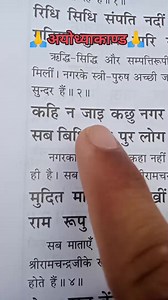 रिधि सिधि संपति नहीं
🙏अयोध्याकाण्ड🙏
ऋद्धि-सिद्धि और सम्पत्तिरूपी
मिलीं। नगरके स्त्री-पुरुष अच्छी ज
सुन्दर हैं॥ २॥
कहि न जाइ कछु नगर
सब बिधि पुर लोग
नगरका कहा नहीं
ही है। सब
मुदित मा
राम रूपु
सब माताएँ
श्रीरामचन्द्रजीके
होते हैं॥ ४॥